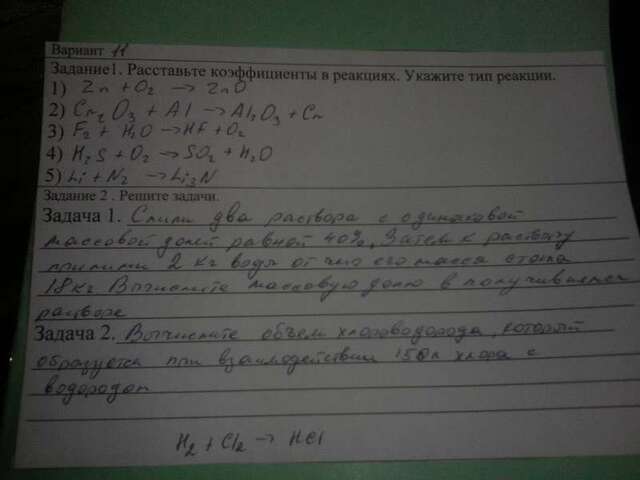 Вариант 11
Задание1. Расставьте коэффициенты в реакциях. Укажите тип реакции.
1) Zn + O₂ → ZnO
2) Cr₂O₃ + Al → Al₂O₃ + Cr
3) F₂ + H₂O → HF + O₂
4) H₂S + O₂ → SO₂ + H₂O
5) Li + N₂ → Li₃N
Задание 2 . Решите задачи.
Задача 1. Слили два раствора с одинаковой
массовой долей равной 40%. Затем к раствору
прилили 2 кг воды от чего его масса стала
18кг. Вычислите массовую долю в получившемся
растворе
Задача 2. Вычислите объем хлороводорода, который
образуется при взаимодействии 150л хлора с
водородом
H₂ + Cl₂ → HCl